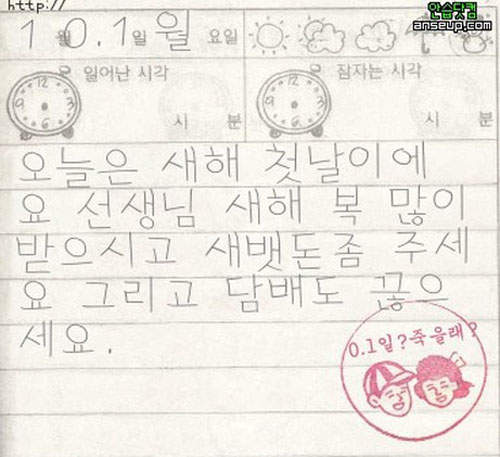 http://
안습닷컴
anseup.com
1 월 0.1 일 월 요일
일어난 시각 잠자는 시각
12 3 6 9 12 3 6 9
시 분 시 분
오늘은 새해 첫날이에
요 선생님 새해 복 많이
받으시고 새뱃돈좀 주세
요 그리고 담배도 끊으
세요.
0.1일?죽을래?